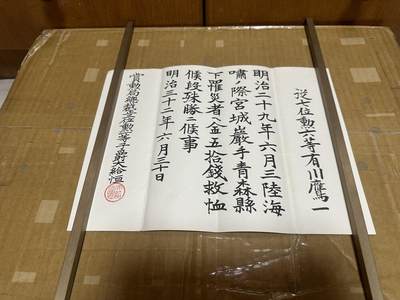 從七位勲六等有川鷹一
明治二十九年六月三陸海
嘯ノ際宮城巖手青森縣
下罹災者ヘ金五拾錢救恤
候段殊勝ニ候事
明治三十二年六月三十日
賞勲局總裁位勲一等子爵大給恒